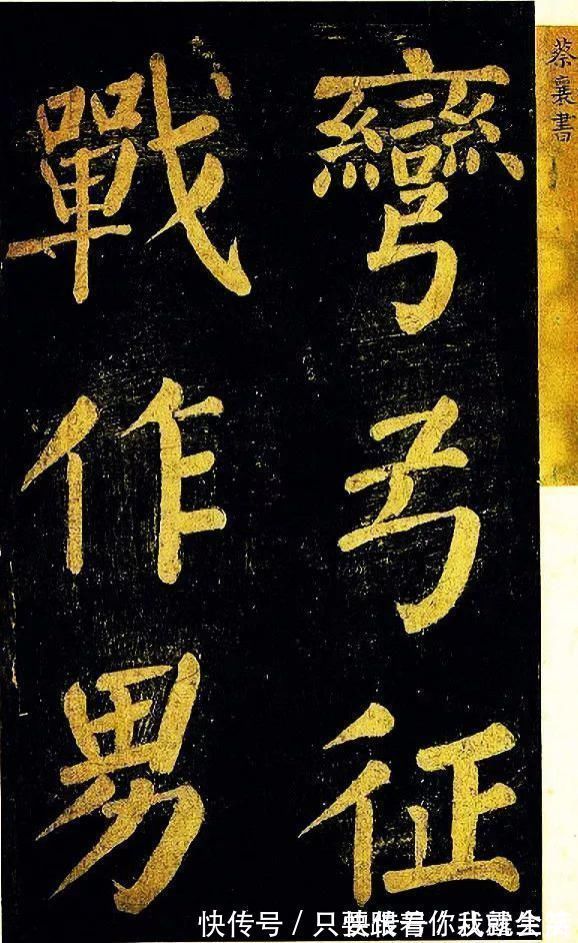 蔡襄書
彎弓征
戰作男
快传号 / 只要跟着你